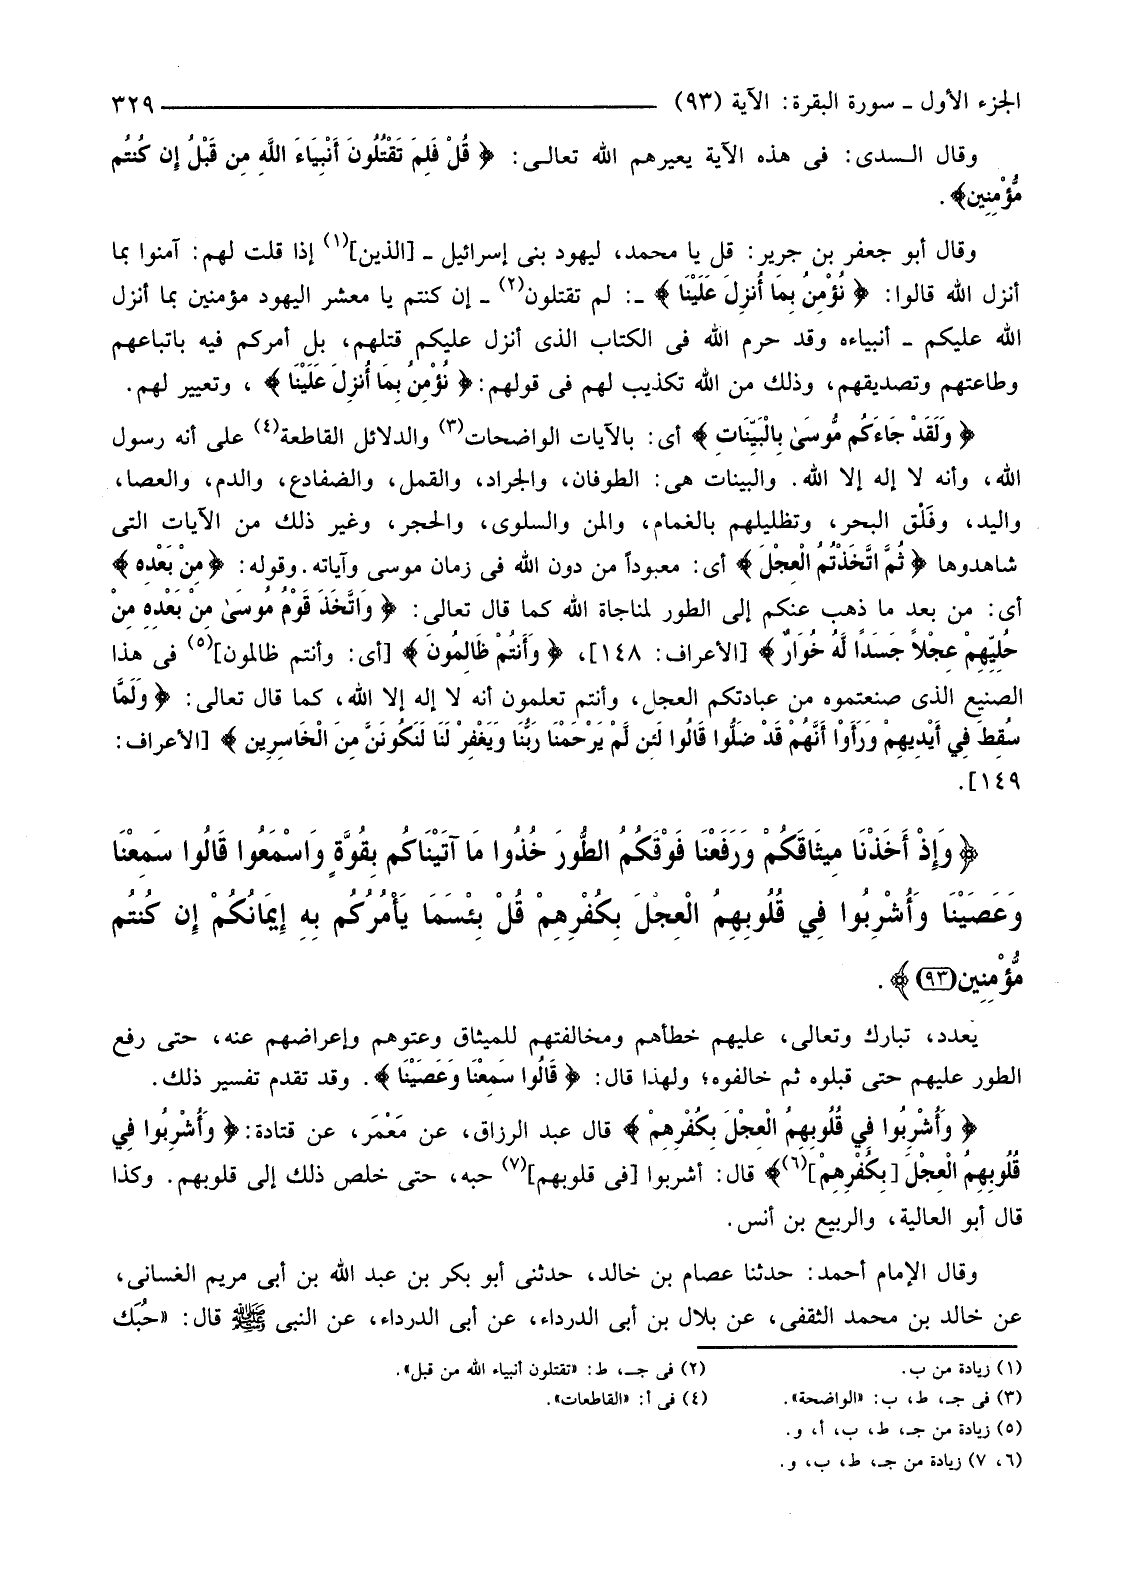 الجزء الأول ـ سورة البقرة: الآية (٩٣) ــــــــــــــــــــ ٣٢٩
وقال السدى: فى هذه الآية يعيرهم الله تعالى: ﴿ قُلْ فَلِمَ تَقْتُلُونَ أَنْبِيَاءَ اللَّهِ مِن قَبْلُ إِن كُنتُم
مُّؤْمِنِين﴾ .
وقال أبو جعفر بن جرير: قل يا محمد، ليهود بنى إسرائيل ـ [الذين](١) إذا قلت لهم: آمنوا بما
أنزل الله قالوا: ﴿ نُؤْمِنُ بِمَا أُنزِلَ عَلَيْنَا ﴾ ـ: لم تقتلون(٢) ـ إن كنتم يا معشر اليهود مؤمنين بما أنزل
الله عليكم ـ أنبياءه وقد حرم الله فى الكتاب الذى أنزل عليكم قتلهم، بل أمركم فيه باتباعهم
وطاعتهم وتصديقهم، وذلك من الله تكذيب لهم فى قولهم: ﴿ نُؤْمِنُ بِمَا أُنزِلَ عَلَيْنَا ﴾ ، وتعيير لهم.
﴿ وَلَقَدْ جَاءَكُم مُّوسَىٰ بِالْبَيِّنَاتِ ﴾ أى: بالآيات الواضحات(٣) والدلائل القاطعة(٤) على أنه رسول
الله، وأنه لا إله إلا الله. والبينات هى: الطوفان، والجراد، والقمل، والضفادع، والدم، والعصا،
واليد، وفَلْق البحر، وتظليلهم بالغمام، والمن والسلوى، والحجر، وغير ذلك من الآيات التى
شاهدوها ﴿ ثُمَّ اتَّخَذْتُمُ الْعِجْلَ ﴾ أى: معبوداً من دون الله فى زمان موسى وآياته. وقوله: ﴿ مِنْ بَعْدِه ﴾
أى: من بعد ما ذهب عنكم إلى الطور لمناجاة الله كما قال تعالى: ﴿ وَاتَّخَذَ قَوْمُ مُوسَىٰ مِنْ بَعْدِهِ مِنْ
حُلِيِّهِمْ عِجْلاً جَسَدًا لَّهُ خُوَارٌ ﴾ [الأعراف: ١٤٨]، ﴿ وَأَنتُمْ ظَالِمُونَ ﴾ [أى: وأنتم ظالمون](٥) فى هذا
الصنيع الذى صنعتموه من عبادتكم العجل، وأنتم تعلمون أنه لا إله إلا الله، كما قال تعالى: ﴿ وَلَمَّا
سُقِطَ فِي أَيْدِيهِمْ وَرَأَوْا أَنَّهُمْ قَدْ ضَلُّوا قَالُوا لَئِن لَّمْ يَرْحَمْنَا رَبُّنَا وَيَغْفِرْ لَنَا لَنَكُونَنَّ مِنَ الْخَاسِرِين ﴾ [الأعراف:
١٤٩].
﴿ وَإِذْ أَخَذْنَا مِيثَاقَكُمْ وَرَفَعْنَا فَوْقَكُمُ الطُّورَ خُذُوا مَا آتَيْنَاكُم بِقُوَّةٍ وَاسْمَعُوا قَالُوا سَمِعْنَا
وَعَصَيْنَا وَأُشْرِبُوا فِي قُلُوبِهِمُ الْعِجْلَ بِكُفْرِهِمْ قُلْ بِئْسَمَا يَأْمُرُكُم بِهِ إِيمَانُكُمْ إِن كُنتُم
مُّؤْمِنِين(٩٣) ﴾ .
يعدد، تبارك وتعالى، عليهم خطأهم ومخالفتهم للميثاق وعتوهم وإعراضهم عنه، حتى رفع
الطور عليهم حتى قبلوه ثم خالفوه؛ ولهذا قال: ﴿ قَالُوا سَمِعْنَا وَعَصَيْنَا ﴾. وقد تقدم تفسير ذلك.
﴿ وَأُشْرِبُوا فِي قُلُوبِهِمُ الْعِجْلَ بِكُفْرِهِمْ ﴾ قال عبد الرزاق، عن مَعْمَر، عن قتادة: ﴿ وَأُشْرِبُوا فِي
قُلُوبِهِمُ الْعِجْلَ [بِكُفْرِهِمْ](٦)﴾ قال: أشربوا [فى قلوبهم](٧) حبه، حتى خلص ذلك إلى قلوبهم. وكذا
قال أبو العالية، والربيع بن أنس.
وقال الإمام أحمد: حدثنا عصام بن خالد، حدثنى أبو بكر بن عبد الله بن أبى مريم الغسانى،
عن خالد بن محمد الثقفى، عن بلال بن أبى الدرداء، عن أبى الدرداء، عن النبى ﷺ قال: «حُبّك
(١) زيادة من ب. (٢) فى جـ، ط: «تقتلون أنبياء الله من قبل».
(٣) فى جـ، ط، ب: «الواضحة». (٤) فى أ: «القاطعات».
(٥) زيادة من جـ، ط، ب، أ، و.
(٦، ٧) زيادة من جـ، ط، ب، و.